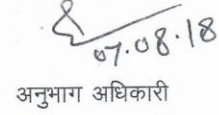 07.08.18
अनुभाग अधिकारी